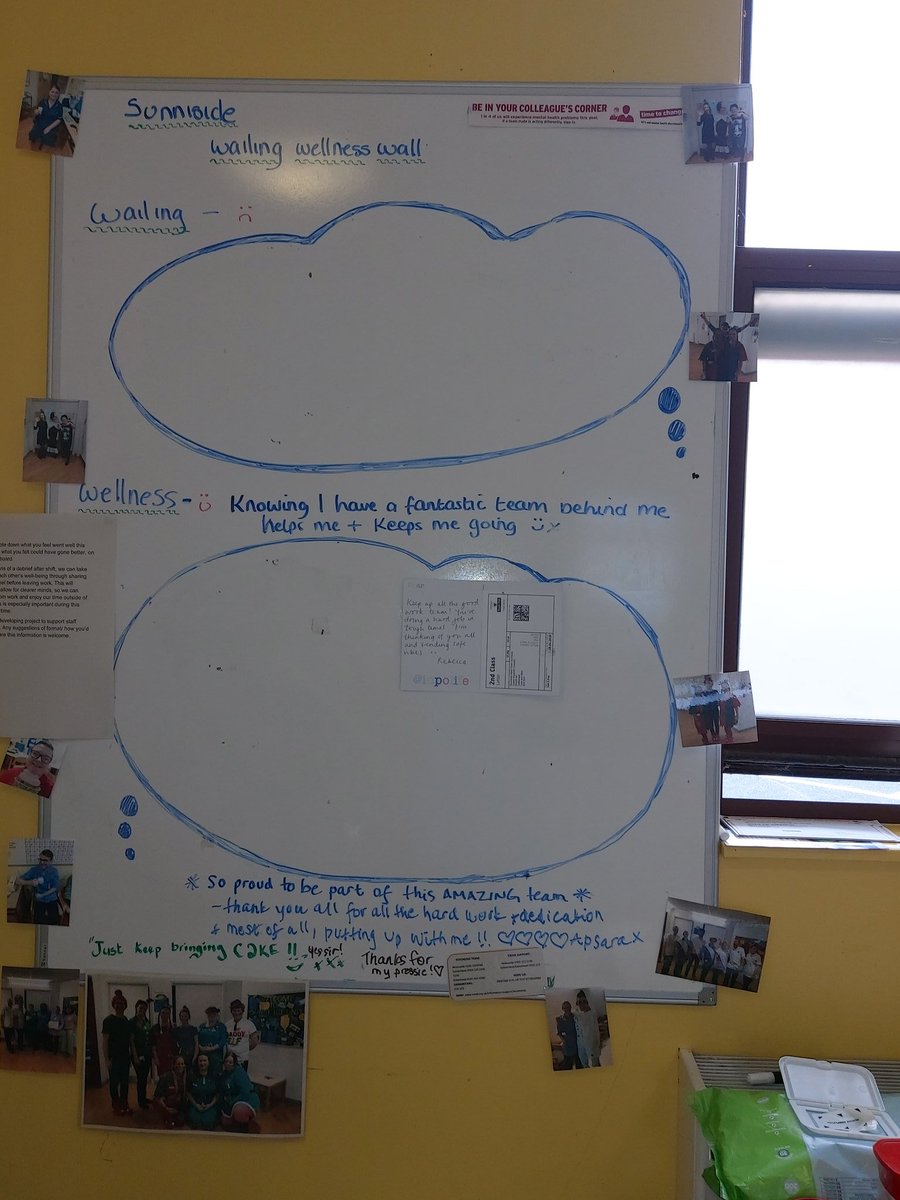 Sunniside
BE IN YOUR COLLEAGUE'S CORNER
1 in 4 of us will experience mental health problems this year.
If a team mate is acting differently, step in.
time to change
wailing wellness wall
Wailing - ☹
Wellness - ☺ Knowing I have a fantastic team behind me
helps me + Keeps me going ☺ x
down what you feel went well this
what you felt could have gone better, on
board.
of a debrief after shift, we can take
each other's well-being through sharing
before leaving work. This will
allow for clearer minds, so we can
work and enjoy our time outside of
is especially important during this
time.
developing project to support staff
Any suggestions of format/ how you'd
this information is welcome
Keep up all the good
work team! You're
doing a hard job in
tough times! I'm
thinking of you all
and sending safe
vibes
Rebecca
2nd Class
Letter
* So proud to be part of this AMAZING team *
- thank you all for all the hard work + dedication
+ most of all, putting up with me!! ♡♡♡♡ Apsara x
"Just keep bringing CAKE!! Yessir!
xxx
Thanks for
my pressie! ♡